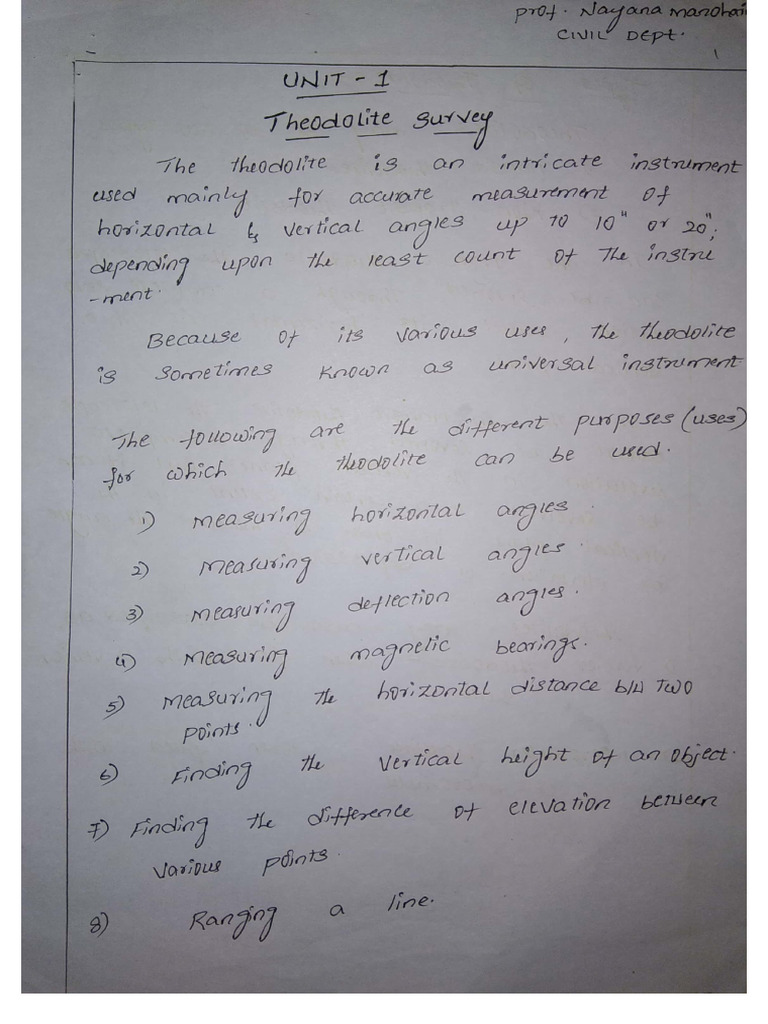 Prof. Nayana Manohar
CIVIL DEPT.
1
UNIT - 1
Theodolite Survey
The theodolite is an intricate instrument
used mainly for accurate measurement of
horizontal & vertical angles up to 10" or 20",
depending upon the least count of the instru
-ment.
Because of its various uses, the theodolite
is sometimes known as universal instrument
The following are the different purposes (uses)
for which the theodolite can be used.
1) Measuring horizontal angles.
2) Measuring vertical angles.
3) Measuring deflection angles.
4) Measuring magnetic bearings.
5) Measuring the horizontal distance b/w Two
points.
6) Finding the vertical height of an object.
7) Finding the difference of elevation between
various points.
8) Ranging a line.